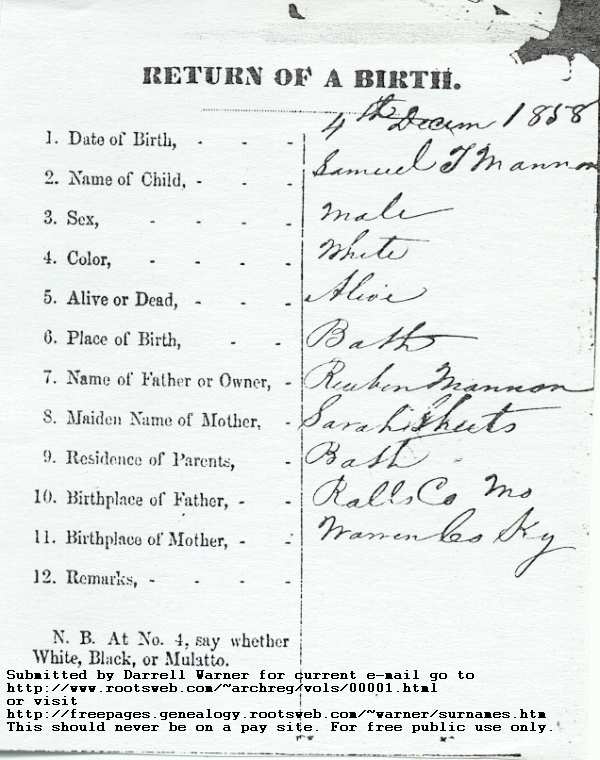 RETURN OF A BIRTH.
1. Date of Birth, - - - 4th Decem 1858
2. Name of Child, - - - Samuel T Mannon
3. Sex, - - - - Male
4. Color, - - - - White
5. Alive or Dead, - - - Alive
6. Place of Birth, - - Bath
7. Name of Father or Owner, - Reuben Mannon
8. Maiden Name of Mother, - Sarah Sheets
9. Residence of Parents, - Bath
10. Birthplace of Father, - - Ralls Co Mo
11. Birthplace of Mother, - - Warren Co Ky
12. Remarks, - - - -
N. B. At No. 4, say whether
White, Black, or Mulatto.
Submitted by Darrell Warner for current e-mail go to
http://www.rootsweb.com/~archreg/vols/00001.html
or visit
http://freepages.genealogy.rootsweb.com/~warner/surnames.htm
This should never be on a pay site. For free public use only.